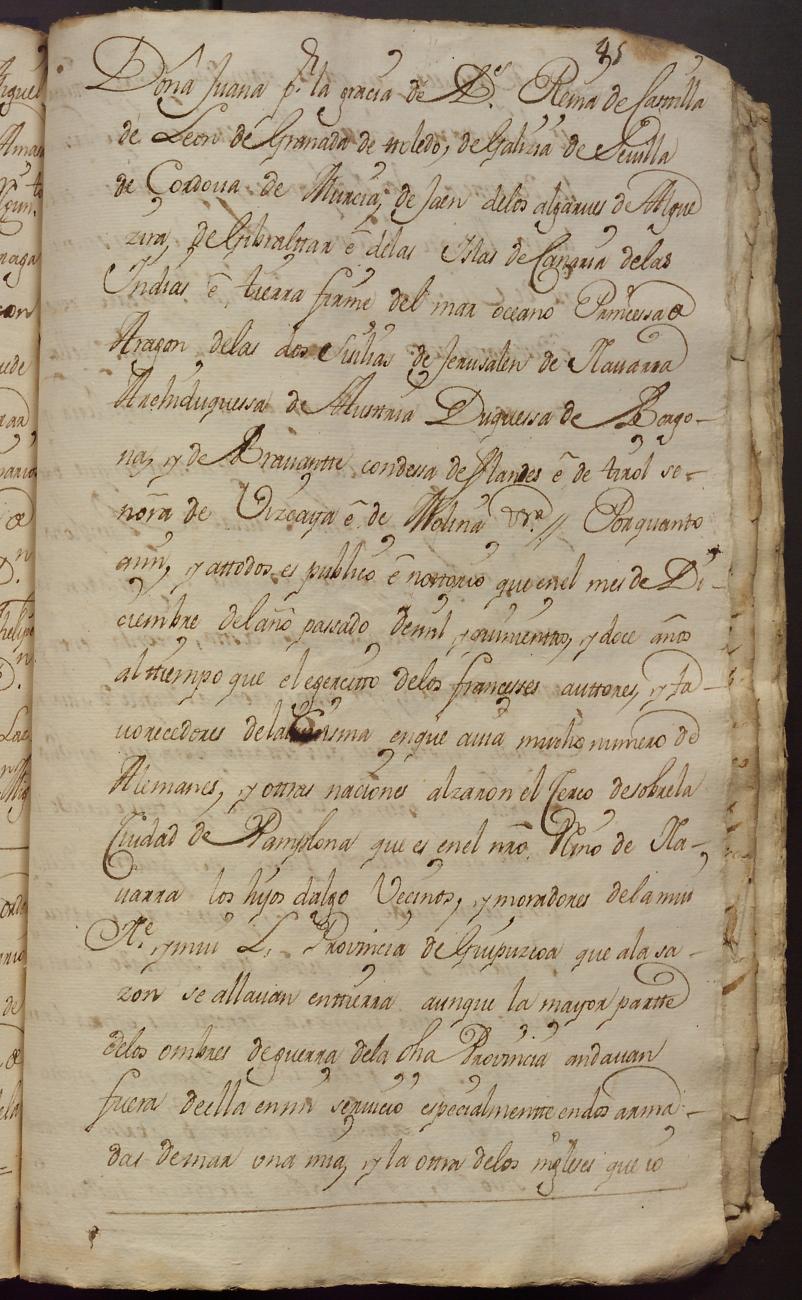 45
Doña Juana pr. la gracia de Ds. Reina de Castilla
de Leon de Granada de toledo, de Galizia de Sevilla
de Cordoua de Murcia, de Jaen delos algarues de Algue
zira, de Gibralttar ê delas Islas de Canaria delas
Indias ê tierra firme del mar oceano Princessa de
Aragon delas dos Sicilias de Jerusalen de Nauarra
Archiduquessa de Austria Duquessa de Borgo-
na, y de Brauantte condessa de flandes ê de tirol se-
ñora de Vizcaya ê de Molina &ra.// Por quanto
a mi, y attodos es publico ê nottorio que enel mes de Di-
ciembre del año passado de mil, y quinienttos, y doce años
al ttiempo que el egercitto delos francesses auttores, y fa-
uorecedores dela Cisma en que auia mucho numero de
Alemanes, y ottras naciones alzaron el Cerco de sobre la
Ciudad de Pamplona que es enel nro. Rno de Na-
uarra los hijos dalgo Vecinos, y moradores dela mui
Ne. y mui L. Provincia de Guipuzcoa que ala sa-
zon se allauan enttierra aunque la mayor partte
delos ombres de guerra dela dha Provincia andauan
fuera de ella en mi servicio especialmentte en dos arma-
das de mar una mia, y la ottra delos ingleses que io